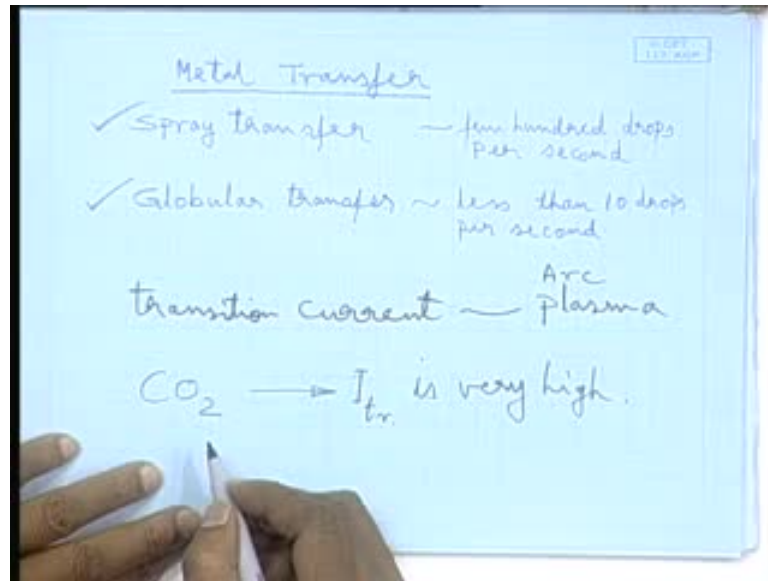 Metal Transfer
✓ Spray transfer ~ few hundred drops
per second
✓ Globular transfer ~ less than 10 drops
per second
Arc
transition current — plasma
CO₂ → I_tr. is very high.